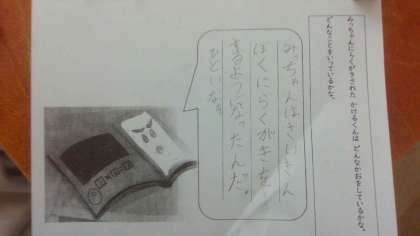 みっちゃんにらくがきされた かけるくんは どんなかおをしているかな。
どんなことをいっているかな。
みっちゃんはさいきん
ぼくにらくがきを
するようになったんだ。
ひどいな。